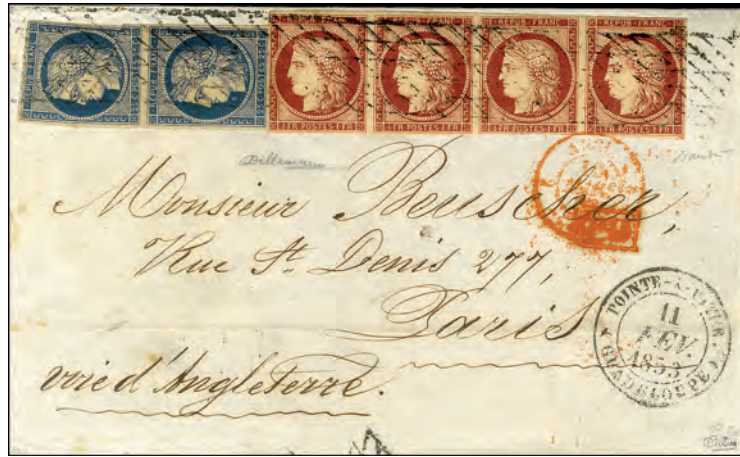 REPUB. FRANC. REPUB. FRANC. REPUB. FRANC. REPUB. FRANC.
1 FR. POSTES 1 FR. 1 FR. POSTES 1 FR. 1 FR. POSTES 1 FR. 1 FR. POSTES 1 FR.
Monsieur Beuscher,
Rue St. Denis 277,
Paris
voie d'Angleterre.
POINTE-A-PITRE
11
FEV.
1853
GUADELOUPE
Calves